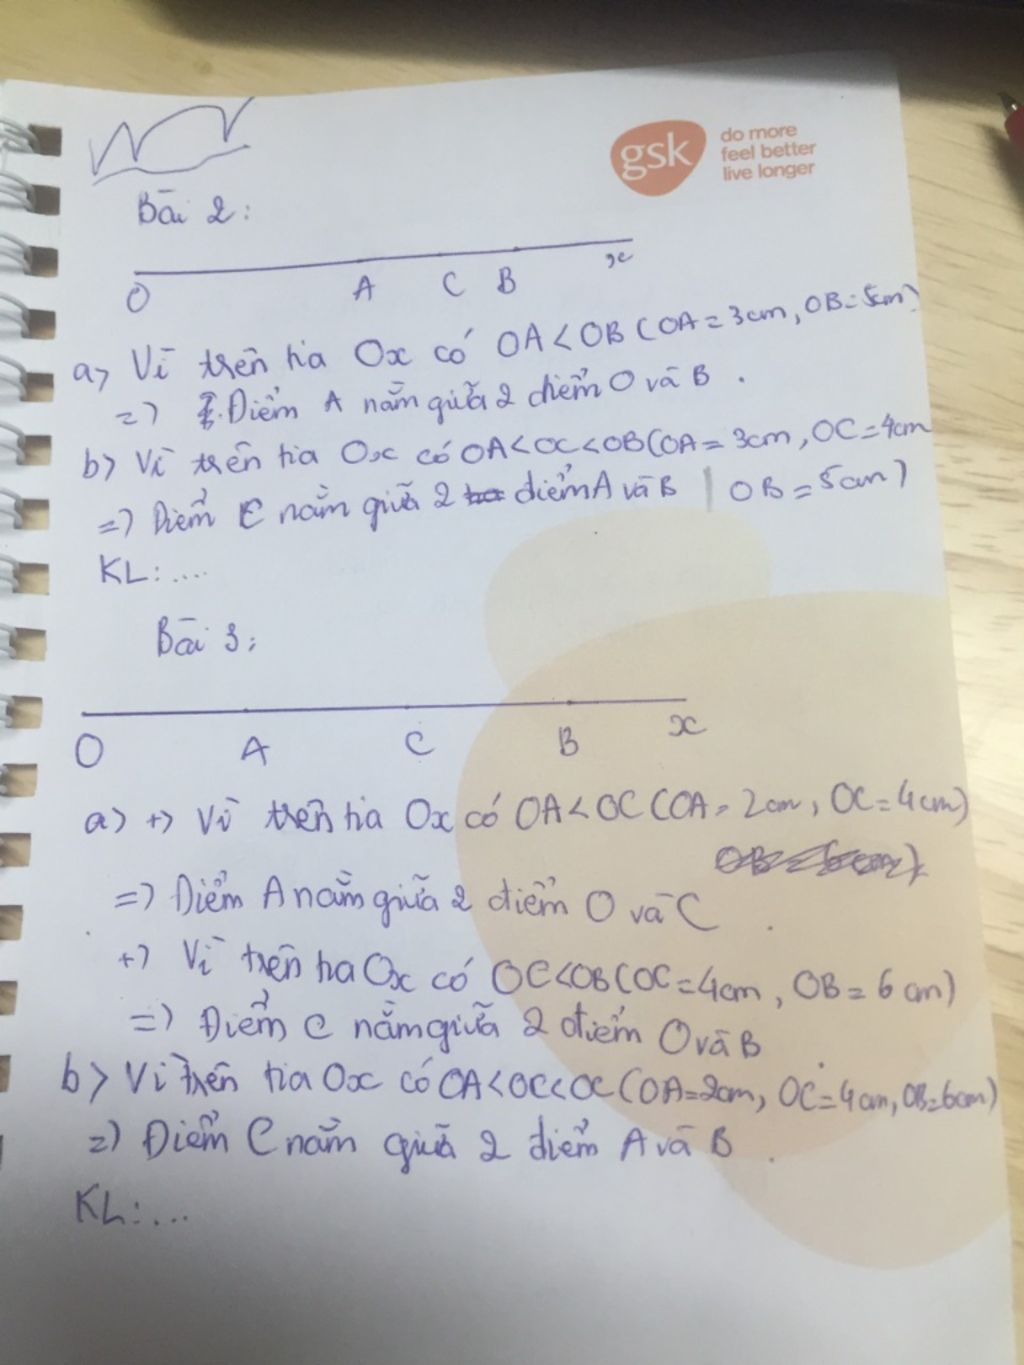 gsk
do more
feel better
live longer
Bài 2:
O A C B x
a) Vì trên tia Ox có OA < OB (OA = 3cm, OB = 5cm)
=> Điểm A nằm giữa 2 điểm O và B.
b) Vì trên tia Ox có OA < OC < OB (OA = 3cm, OC = 4cm
=> Điểm C nằm giữa 2 điểm A và B | OB = 5cm)
KL: ....
Bài 3:
O A C B x
a) +) Vì trên tia Ox có OA < OC (OA = 2cm, OC = 4cm)
=> Điểm A nằm giữa 2 điểm O và C.
+) Vì trên tia Ox có OC < OB (OC = 4cm, OB = 6cm)
=> Điểm C nằm giữa 2 điểm O và B
b) Vì trên tia Ox có OA < OC < OC (OA = 2cm, OC = 4cm, OB = 6cm)
=) Điểm C nằm giữa 2 điểm A và B.
KL: ...